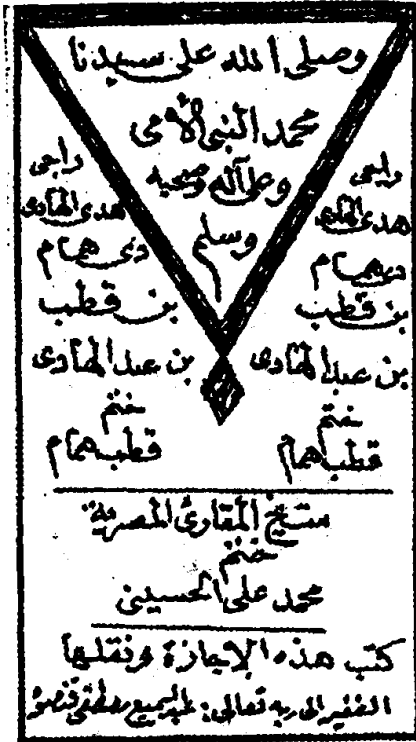 وصلى الله على سيدنا
محمد النبي الأمى
وعلى آله وصحبه
وسلم
راجى
هدى الهادى
ذى همام
بن قطب
بن عبد الهادى
ختم
قطب همام
راجى
هدى الهادى
ذى همام
بن قطب
بن عبد الهادى
ختم
قطب همام
شيخ المقارئ المصرية
ختم
محمد على الحسينى
كتب هذه الإجازة ونقلها
الفقير إلى ربه تعالى: عبد السميع